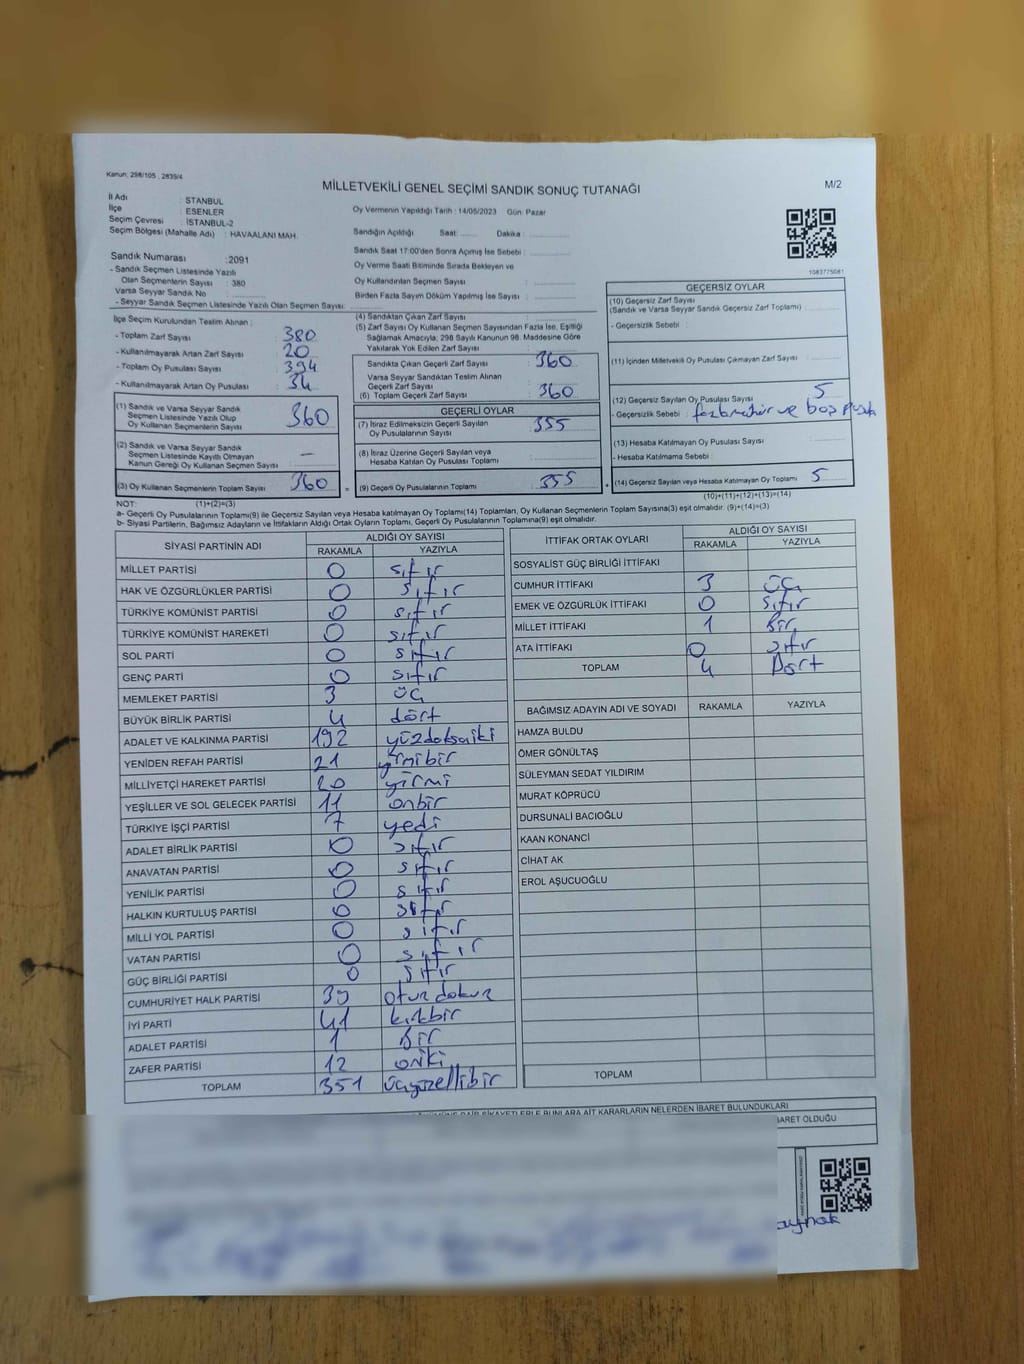 Kanun: 298/105 , 2839/4
MİLLETVEKİLİ GENEL SEÇİMİ SANDIK SONUÇ TUTANAĞI
M/2
İl Adı : STANBUL
İlçe : ESENLER
Seçim Çevresi : İSTANBUL-2
Seçim Bölgesi (Mahalle Adı) : HAVAALANI MAH.
Oy Vermenin Yapıldığı Tarih : 14/05/2023 Gün: Pazar
Sandığın Açıldığı Saat: ...... Dakika : ..............
Sandık Saat 17:00'den Sonra Açımış İse Sebebi : ..............
Oy Verme Saati Bitiminde Sırada Bekleyen ve
Oy Kullandırılan Seçmen Sayısı : ..............
Birden Fazla Sayım Döküm Yapılmış İse Sayısı : ..............
1083775081
Sandık Numarası :2091
- Sandık Seçmen Listesinde Yazılı
Olan Seçmenlerin Sayısı : 380
Varsa Seyyar Sandık No : ..............
- Seyyar Sandık Seçmen Listesinde Yazılı Olan Seçmen Sayısı:
İlçe Seçim Kurulundan Teslim Alınan :
- Toplam Zarf Sayısı : 380
- Kullanılmayarak Artan Zarf Sayısı : 20
- Toplam Oy Pusulası Sayısı : 394
- Kullanılmayarak Artan Oy Pusulası : 34
(1) Sandık ve Varsa Seyyar Sandık
Seçmen Listesinde Yazılı Olup
Oy Kullanan Seçmenlerin Sayısı : 360
(2) Sandık ve Varsa Seyyar Sandık
Seçmen Listesinde Kayıtlı Olmayan
Kanun Gereği Oy Kullanan Seçmen Sayısı : —
(3) Oy Kullanan Seçmenlerin Toplam Sayısı : 360
(4) Sandıktan Çıkan Zarf Sayısı :
(5) Zarf Sayısı Oy Kullanan Seçmen Sayısından Fazla İse, Eşitliği
Sağlamak Amacıyla; 298 Sayılı Kanunun 98. Maddesine Göre
Yakılarak Yok Edilen Zarf Sayısı :
Sandıkta Çıkan Geçerli Zarf Sayısı : 360
Varsa Seyyar Sandıktan Teslim Alınan
Geçerli Zarf Sayısı :
(6) Toplam Geçerli Zarf Sayısı : 360
GEÇERLİ OYLAR
(7) İtiraz Edilmeksizin Geçerli Sayılan
Oy Pusulalarının Sayısı : 355
(8) İtiraz Üzerine Geçerli Sayılan veya
Hesaba Katılan Oy Pusulası Toplamı :
= (9) Geçerli Oy Pusulalarının Toplamı : 355
GEÇERSİZ OYLAR
(10) Geçersiz Zarf Sayısı
(Sandık ve Varsa Seyyar Sandık Geçersiz Zarf Toplamı) :
- Geçersizlik Sebebi :
(11) İçinden Milletvekili Oy Pusulası Çıkmayan Zarf Sayısı :
(12) Geçersiz Sayılan Oy Pusulası Sayısı : 5
- Geçersizlik Sebebi : ve boş
(13) Hesaba Katılmayan Oy Pusulası Sayısı :
- Hesaba Katılmama Sebebi :
+ (14) Geçersiz Sayılan veya Hesaba Katılmayan Oy Toplamı : 5
NOT: (1)+(2)=(3)
(10)+(11)+(12)+(13)=(14)
a- Geçerli Oy Pusulalarının Toplamı(9) ile Geçersiz Sayılan veya hesaba katılmayan Oy Toplamı(14) Toplamları, Oy Kullanan Seçmenlerin Toplam Sayısına(3) eşit olmalıdır. (9)+(14)=(3)
b- Siyasi Partilerin, Bağımsız Adayların ve İttifakların Aldığı Ortak Oyların Toplamı, Geçerli Oy Pusulalarının Toplamına(9) eşit olmalıdır.
SİYASİ PARTİNİN ADI ALDIĞI OY SAYISI
RAKAMLA YAZIYLA
MİLLET PARTİSİ 0 sıfır
HAK VE ÖZGÜRLÜKLER PARTİSİ 0 sıfır
TÜRKİYE KOMÜNİST PARTİSİ 0 sıfır
TÜRKİYE KOMÜNİST HAREKETİ 0 sıfır
SOL PARTİ 0 sıfır
GENÇ PARTİ 0 sıfır
MEMLEKET PARTİSİ 3 üç
BÜYÜK BİRLİK PARTİSİ 4 dört
ADALET VE KALKINMA PARTİSİ 192 yüzdoksaiki
YENİDEN REFAH PARTİSİ 21 yirmibir
MİLLİYETÇİ HAREKET PARTİSİ 20 yirmi
YEŞİLLER VE SOL GELECEK PARTİSİ 11 onbir
TÜRKİYE İŞÇİ PARTİSİ 7 yedi
ADALET BİRLİK PARTİSİ 0 sıfır
ANAVATAN PARTİSİ 0 sıfır
YENİLİK PARTİSİ 0 sıfır
HALKIN KURTULUŞ PARTİSİ 0 sıfır
MİLLİ YOL PARTİSİ 0 sıfır
VATAN PARTİSİ 0 sıfır
GÜÇ BİRLİĞİ PARTİSİ 0 sıfır
CUMHURİYET HALK PARTİSİ 39 otuzdokuz
İYİ PARTİ 41 kırkbir
ADALET PARTİSİ 1 Bir
ZAFER PARTİSİ 12 oniki
TOPLAM 351 üçyüzellibir
İTTİFAK ORTAK OYLARI ALDIĞI OY SAYISI
RAKAMLA YAZIYLA
SOSYALİST GÜÇ BİRLİĞİ İTTİFAKI
CUMHUR İTTİFAKI 3 üç
EMEK VE ÖZGÜRLÜK İTTİFAKI 0 sıfır
MİLLET İTTİFAKI 1 Bir
ATA İTTİFAKI 0 sıfır
TOPLAM 4 Dört
BAĞIMSIZ ADAYIN ADI VE SOYADI RAKAMLA YAZIYLA
HAMZA BULDU
ÖMER GÖNÜLTAŞ
SÜLEYMAN SEDAT YILDIRIM
MURAT KÖPRÜCÜ
DURSUNALİ BACIOĞLU
KAAN KONANCİ
CİHAT AK
EROL AŞUCUOĞLU
TOPLAM
KARARLARIN NELERDEN İBARET BULUNDUKLARI
BARET OLDUĞU
aynak